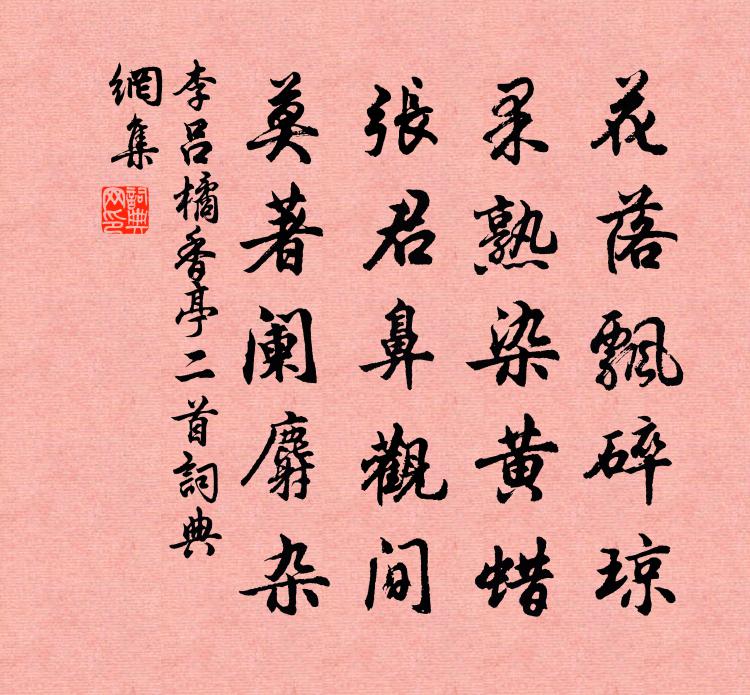 花落飄碎琼
果熟染黄蜡
張君鼻觀间
莫著阑麝杂
李吕橘香亭二首詞典
網集
詞典
网印